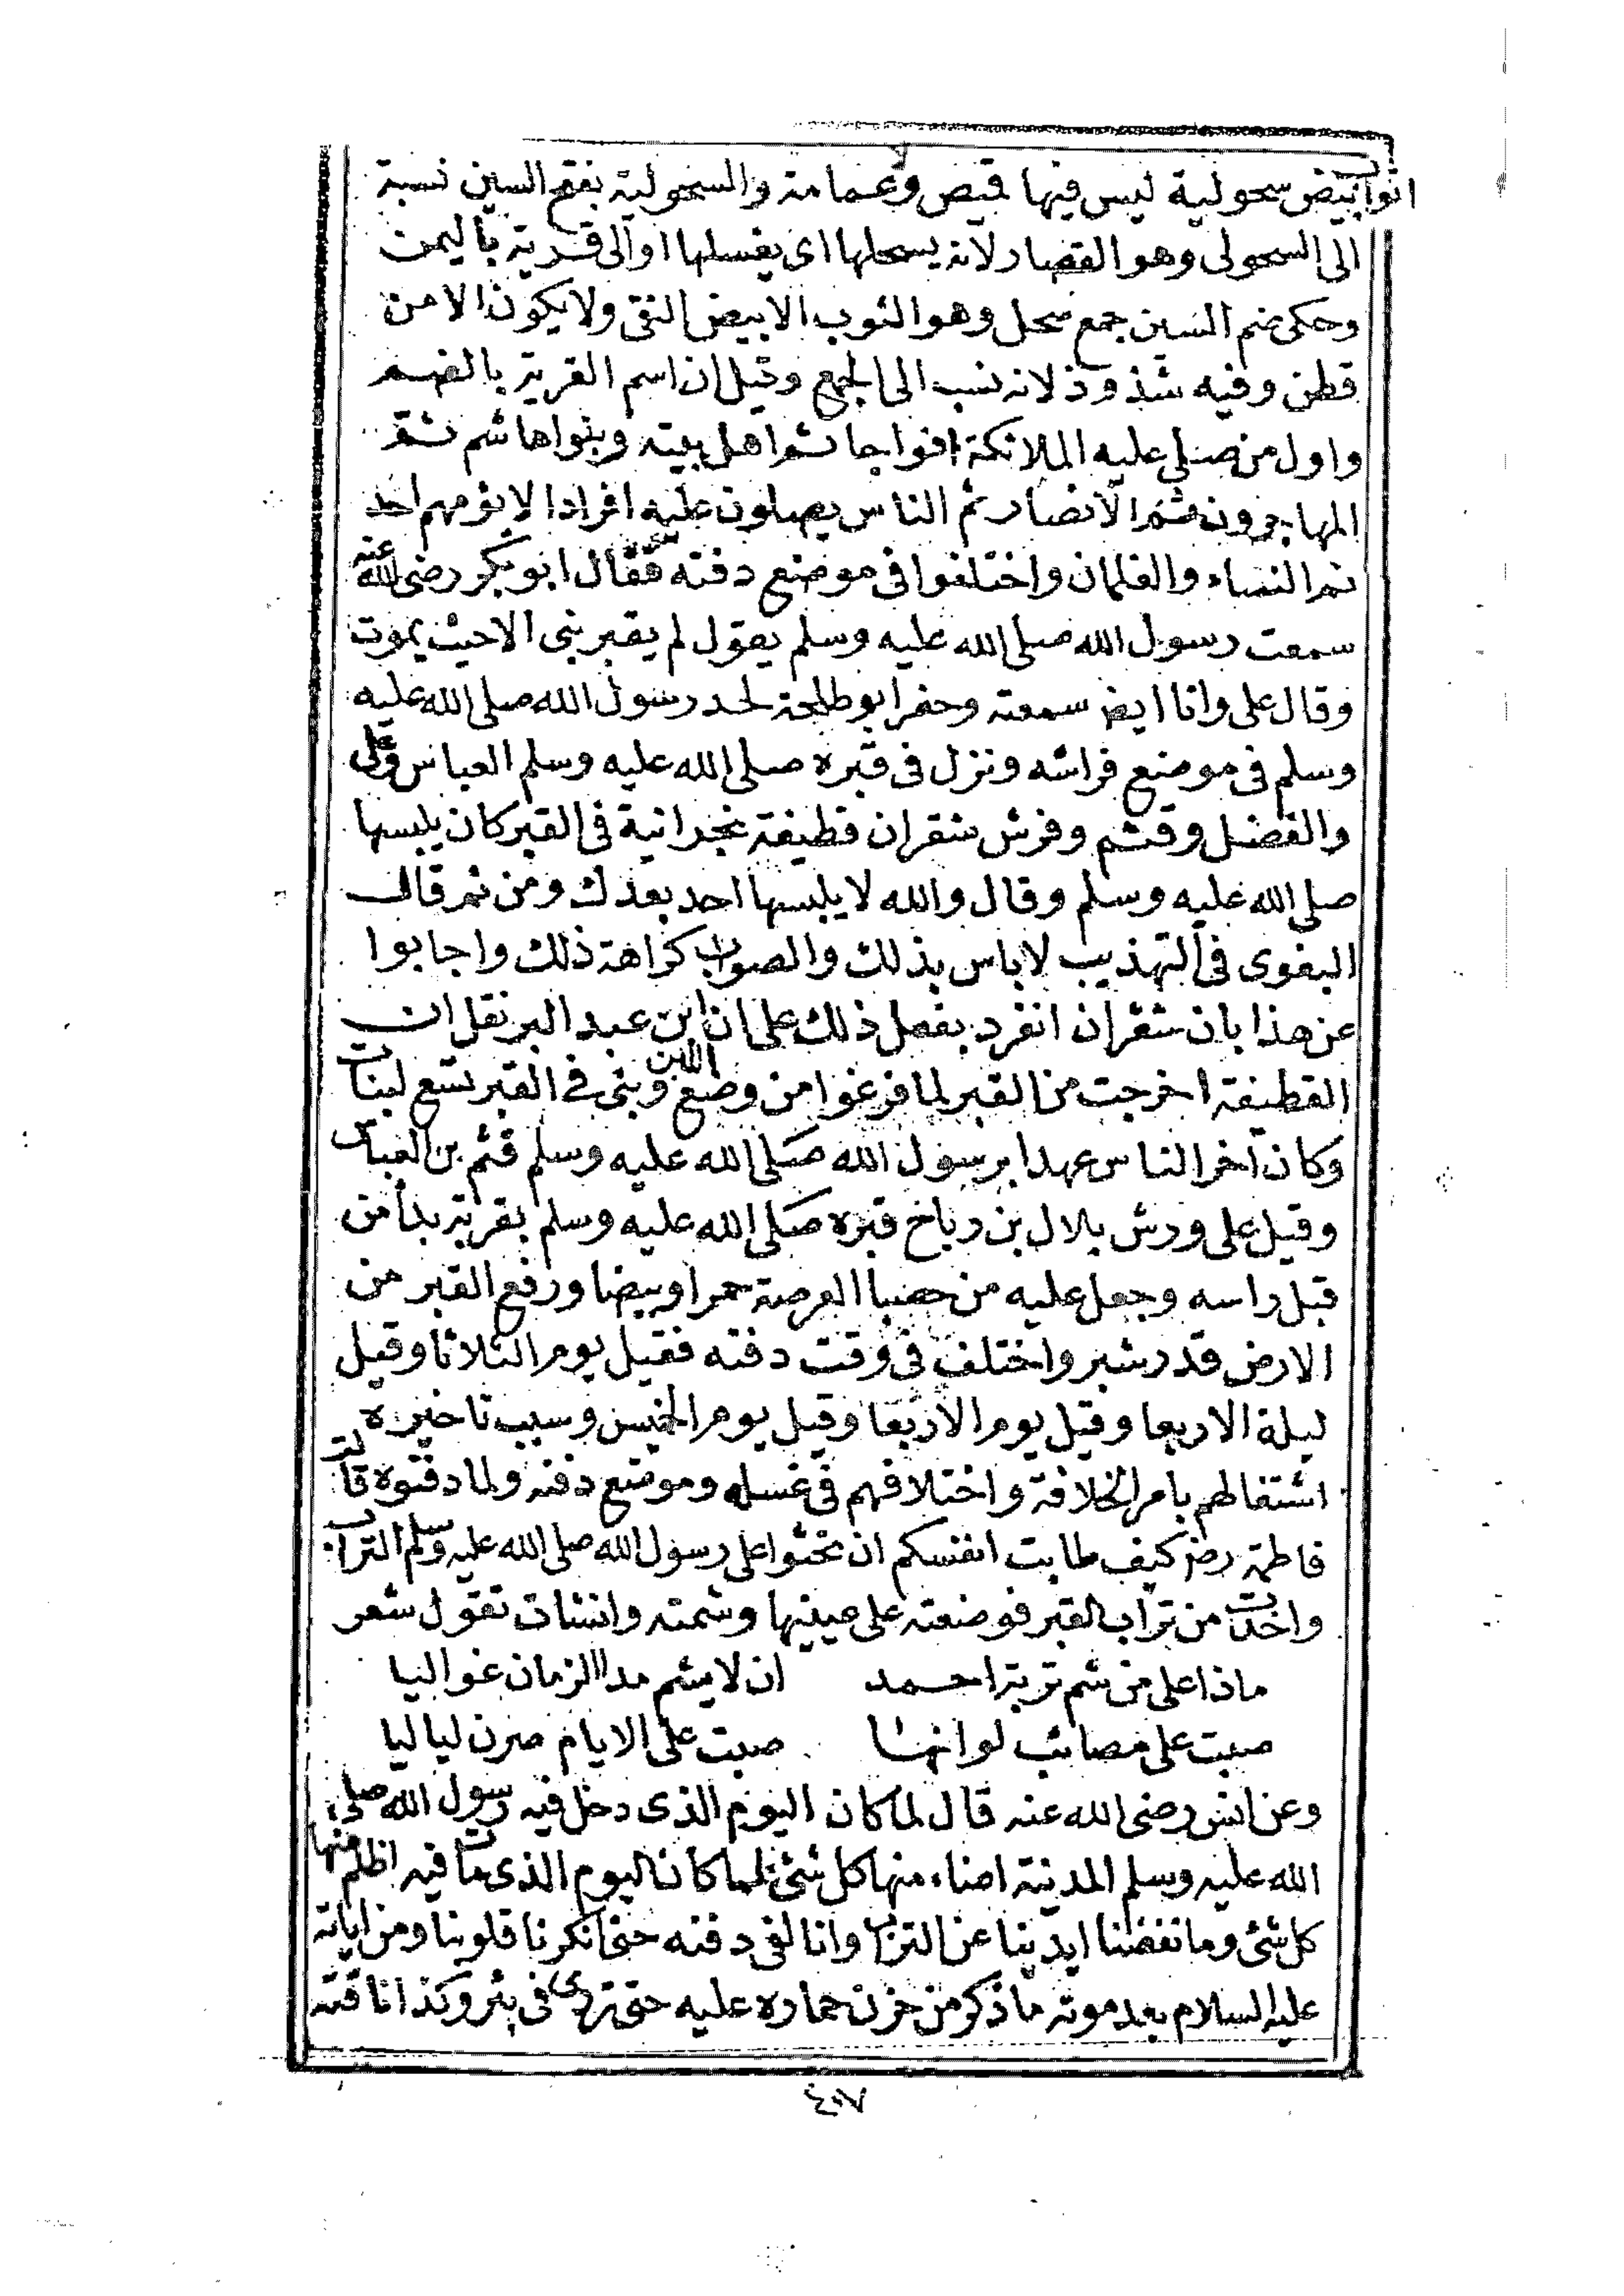 اثواب بيض سحولية ليس فيها قميص ولا عمامة والسحولية بفتح السين نسبة
الى السحولى وهو القصار لانه يسحلها اى يغسلها او الى قرية باليمن
وحكى ضم السين جمع سحل وهو الثوب الابيض النقى ولا يكون الا من
قطن وفيه شذوذ لانه نسب الى الجمع وقيل ان اسم القرية بالضم
واول من صلى عليه الملائكة افواجا ثم اهل بيته وبنوا هاشم ثم
المهاجرون ثم الانصار ثم الناس يصلون عليه افرادا لا يؤمهم احد
ثم النساء والغلمان واختلفوا فى موضع دفنه فقال ابو بكر رضى الله عنه
سمعت رسول الله صلى الله عليه وسلم يقول لم يقبر نبى الا حيث يموت
وقال على وانا ايض سمعته وحفر ابو طلحة لحد رسول الله صلى الله عليه
وسلم فى موضع فراشه ونزل فى قبره صلى الله عليه وسلم العباس وعلى
والفضل وقثم وفرش شقران قطيفة نجرانية فى القبر كان يلبسها
صلى الله عليه وسلم وقال والله لا يلبسها احد بعدك ومن ثم قال
البغوى فى التهذيب لا باس بذلك والصواب كراهة ذلك واجابوا
عن هذا بان شقران انفرد بفعل ذلك على ان ابن عبد البر نقل ان
القطيفة اخرجت من القبر لما فرغوا من وضع اللبن وبنى فى القبر تسع لبنات
وكان آخر الناس عهدا برسول الله صلى الله عليه وسلم قثم بن العباس
وقيل على ورش بلال بن رباح قبره صلى الله عليه وسلم بقربة بدأ من
قبل راسه وجعل عليه من حصبا العرصة حمرا وبيضا ورفع القبر من
الارض قدر شبر واختلف فى وقت دفنه فقيل يوم الثلاثا وقيل
ليلة الاربعا وقيل يوم الاربعا وقيل يوم الخميس وسبب تاخيره
اشتغالهم بامر الخلافة واختلافهم فى غسله وموضع دفنه ولما دفنوه قالت
فاطمة رضـ كيف طابت انفسكم ان تحثوا على رسول الله صلى الله عليه وسلم التراب
واخذت من تراب القبر فوضعته على عينيها وشمته وانشات تقول شعر
ماذا على من شم تربة احمد ان لا يشم مدا الزمان غواليا
صبت على مصائب لو انها صبت على الايام صرن لياليا
وعن انس رضى الله عنه قال لما كان اليوم الذى دخل فيه رسول الله صلى
الله عليه وسلم المدينة اضاء منها كل شئ فلما كان اليوم الذى مات فيه اظلم منها
كل شئ وما نفضنا ايدينا عن التراب وانا لفى دفنه حتى انكرنا قلوبنا ومن اياته
عليه السلام بعد موته ما ذكر من حزن حماره عليه حتى تردى فى بئر وكذا ناقته
٤٥٧